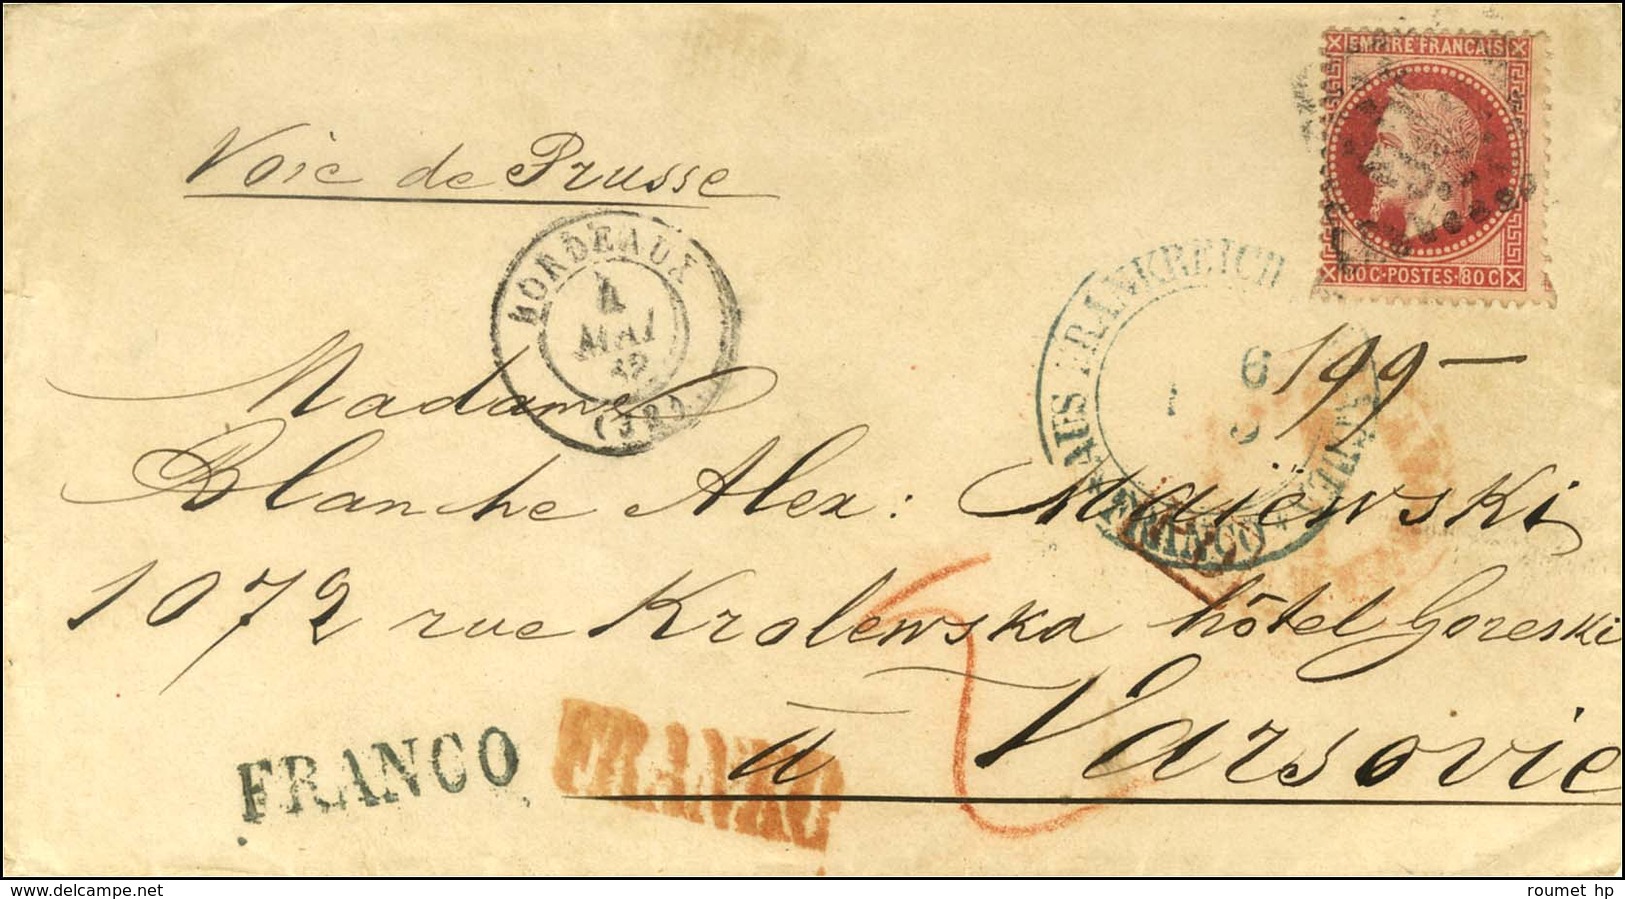 EMPIRE FRANCAIS
80 C · POSTES · 80 C
Voie de Prusse
BORDEAUX
4
MAI
(32)
AUS FRANKREICH
6
FRANCO
199-
Madame
Blanche Alex: Maiewski
1072 rue Krolewska hôtel Goreski
à Varsovie
FRANCO
FRANKO
roumet hp
www.delcampe.net